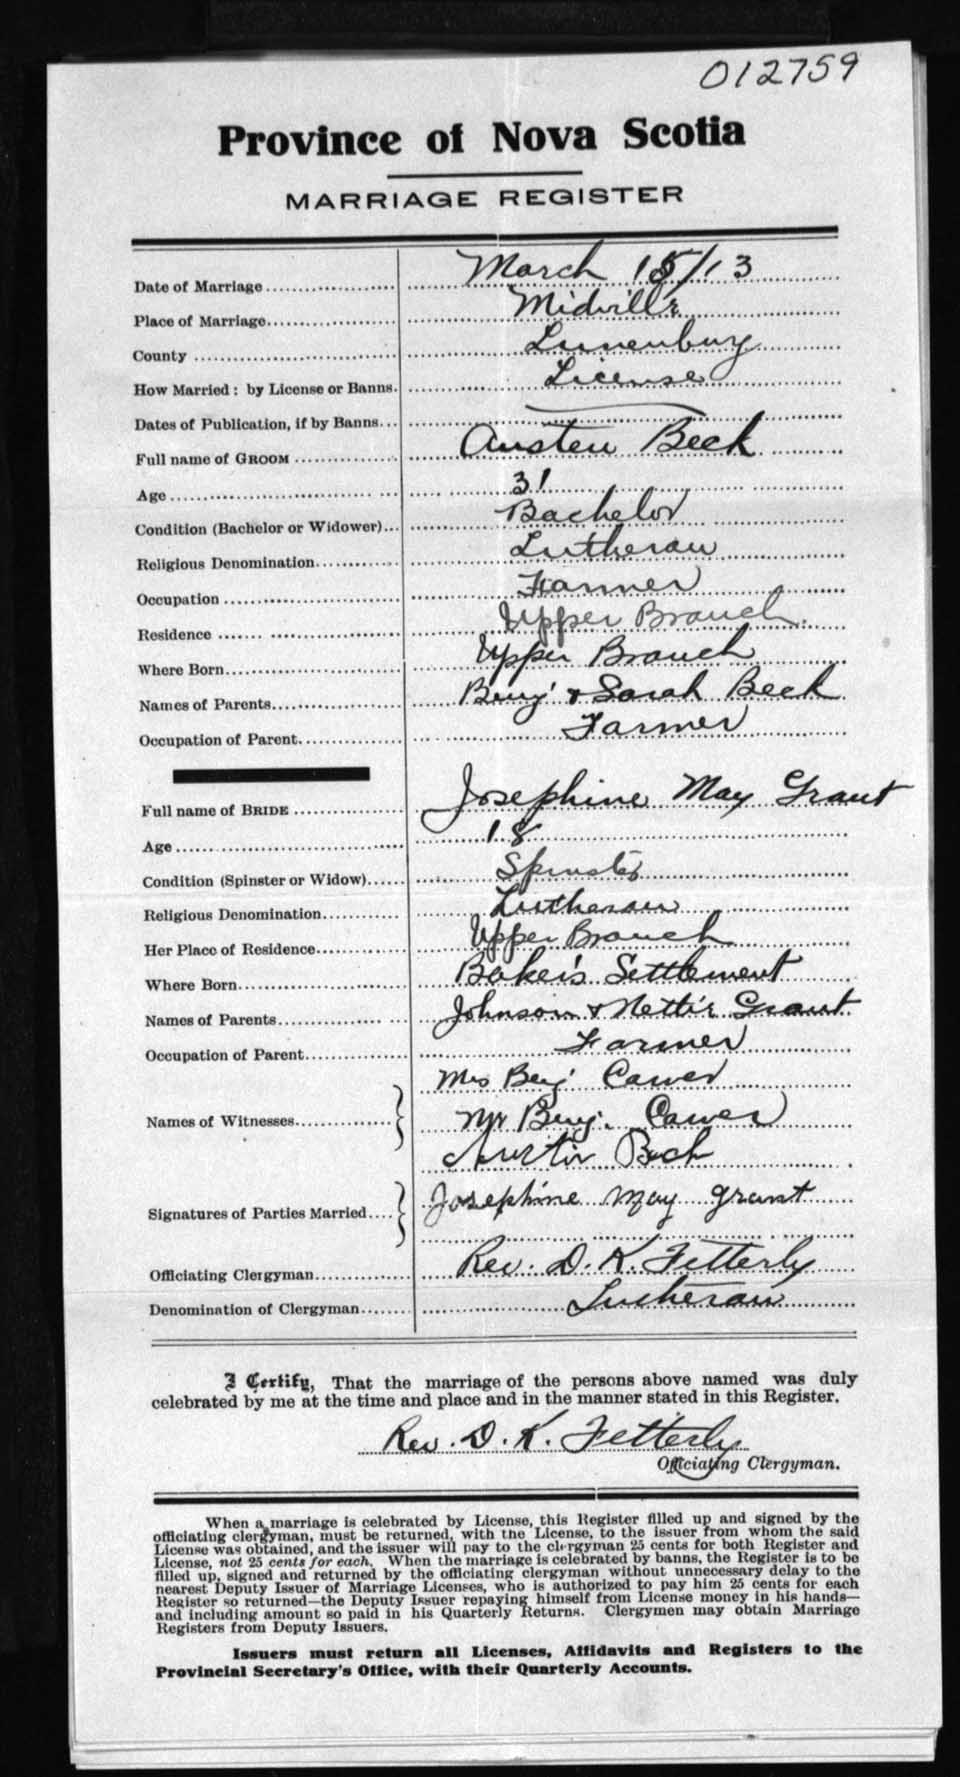 012759
Province of Nova Scotia
MARRIAGE REGISTER
Date of Marriage March 15/13
Place of Marriage Midville
County Lunenburg
How Married: by License or Banns. License
Dates of Publication, if by Banns
Full name of GROOM Austen Beck
Age 31
Condition (Bachelor or Widower) Bachelor
Religious Denomination Lutheran
Occupation Farmer
Residence Upper Branch
Where Born Upper Branch
Names of Parents Benj' & Sarah Beck
Occupation of Parent Farmer
Full name of BRIDE Josephine May Grant
Age 18
Condition (Spinster or Widow) Spinster
Religious Denomination Lutheran
Her Place of Residence Upper Branch
Where Born Baker's Settlement
Names of Parents Johnson & Nettie Grant
Occupation of Parent Farmer
Mrs Benj'
Names of Witnesses Mr Benj.
Beck
Signatures of Parties Married Josephine May Grant
Officiating Clergyman Rev. D. K. Fetterly
Denomination of Clergyman Lutheran
I Certify, That the marriage of the persons above named was duly
celebrated by me at the time and place and in the manner stated in this Register.
Rev. D. K. Fetterly
Officiating Clergyman.
When a marriage is celebrated by License, this Register filled up and signed by the
officiating clergyman, must be returned, with the License, to the issuer from whom the said
License was obtained, and the issuer will pay to the clergyman 25 cents for both Register and
License, not 25 cents for each. When the marriage is celebrated by banns, the Register is to be
filled up, signed and returned by the officiating clergyman without unnecessary delay to the
nearest Deputy Issuer of Marriage Licenses, who is authorized to pay him 25 cents for each
Register so returned—the Deputy Issuer repaying himself from License money in his hands—
and including amount so paid in his Quarterly Returns. Clergymen may obtain Marriage
Registers from Deputy Issuers.
Issuers must return all Licenses, Affidavits and Registers to the
Provincial Secretary's Office, with their Quarterly Accounts.